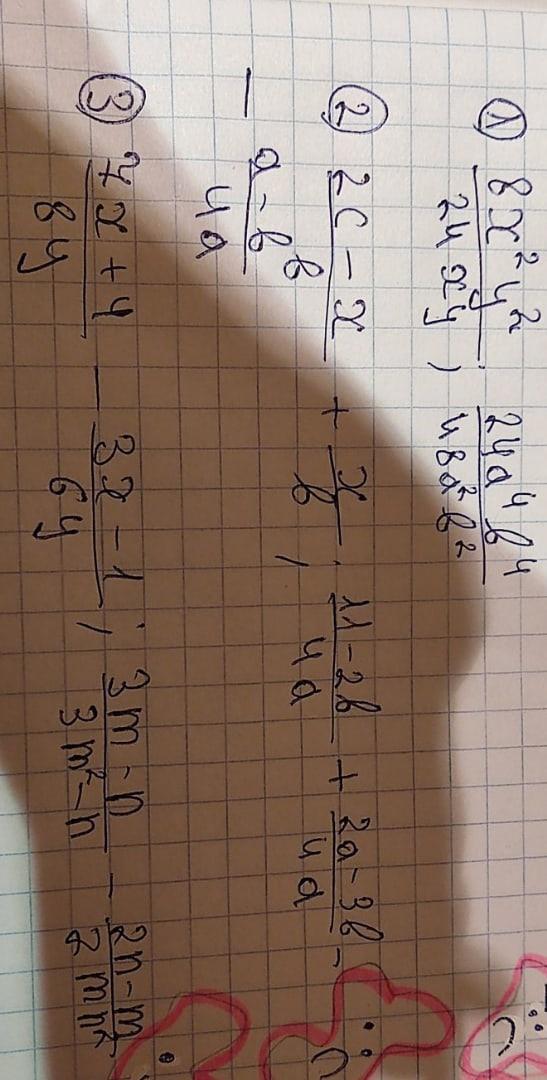 ① 8x²y²/24xy ; 24a⁴b⁴/48a²b²
② 2c-x/b + x/b ; 11-2b/4a + 2a-3b/4a -
- a-b/4a
③ 7x+4/8y - 3x-1/6y ; 3m-n/3m²-n - 2n-m/2mn²